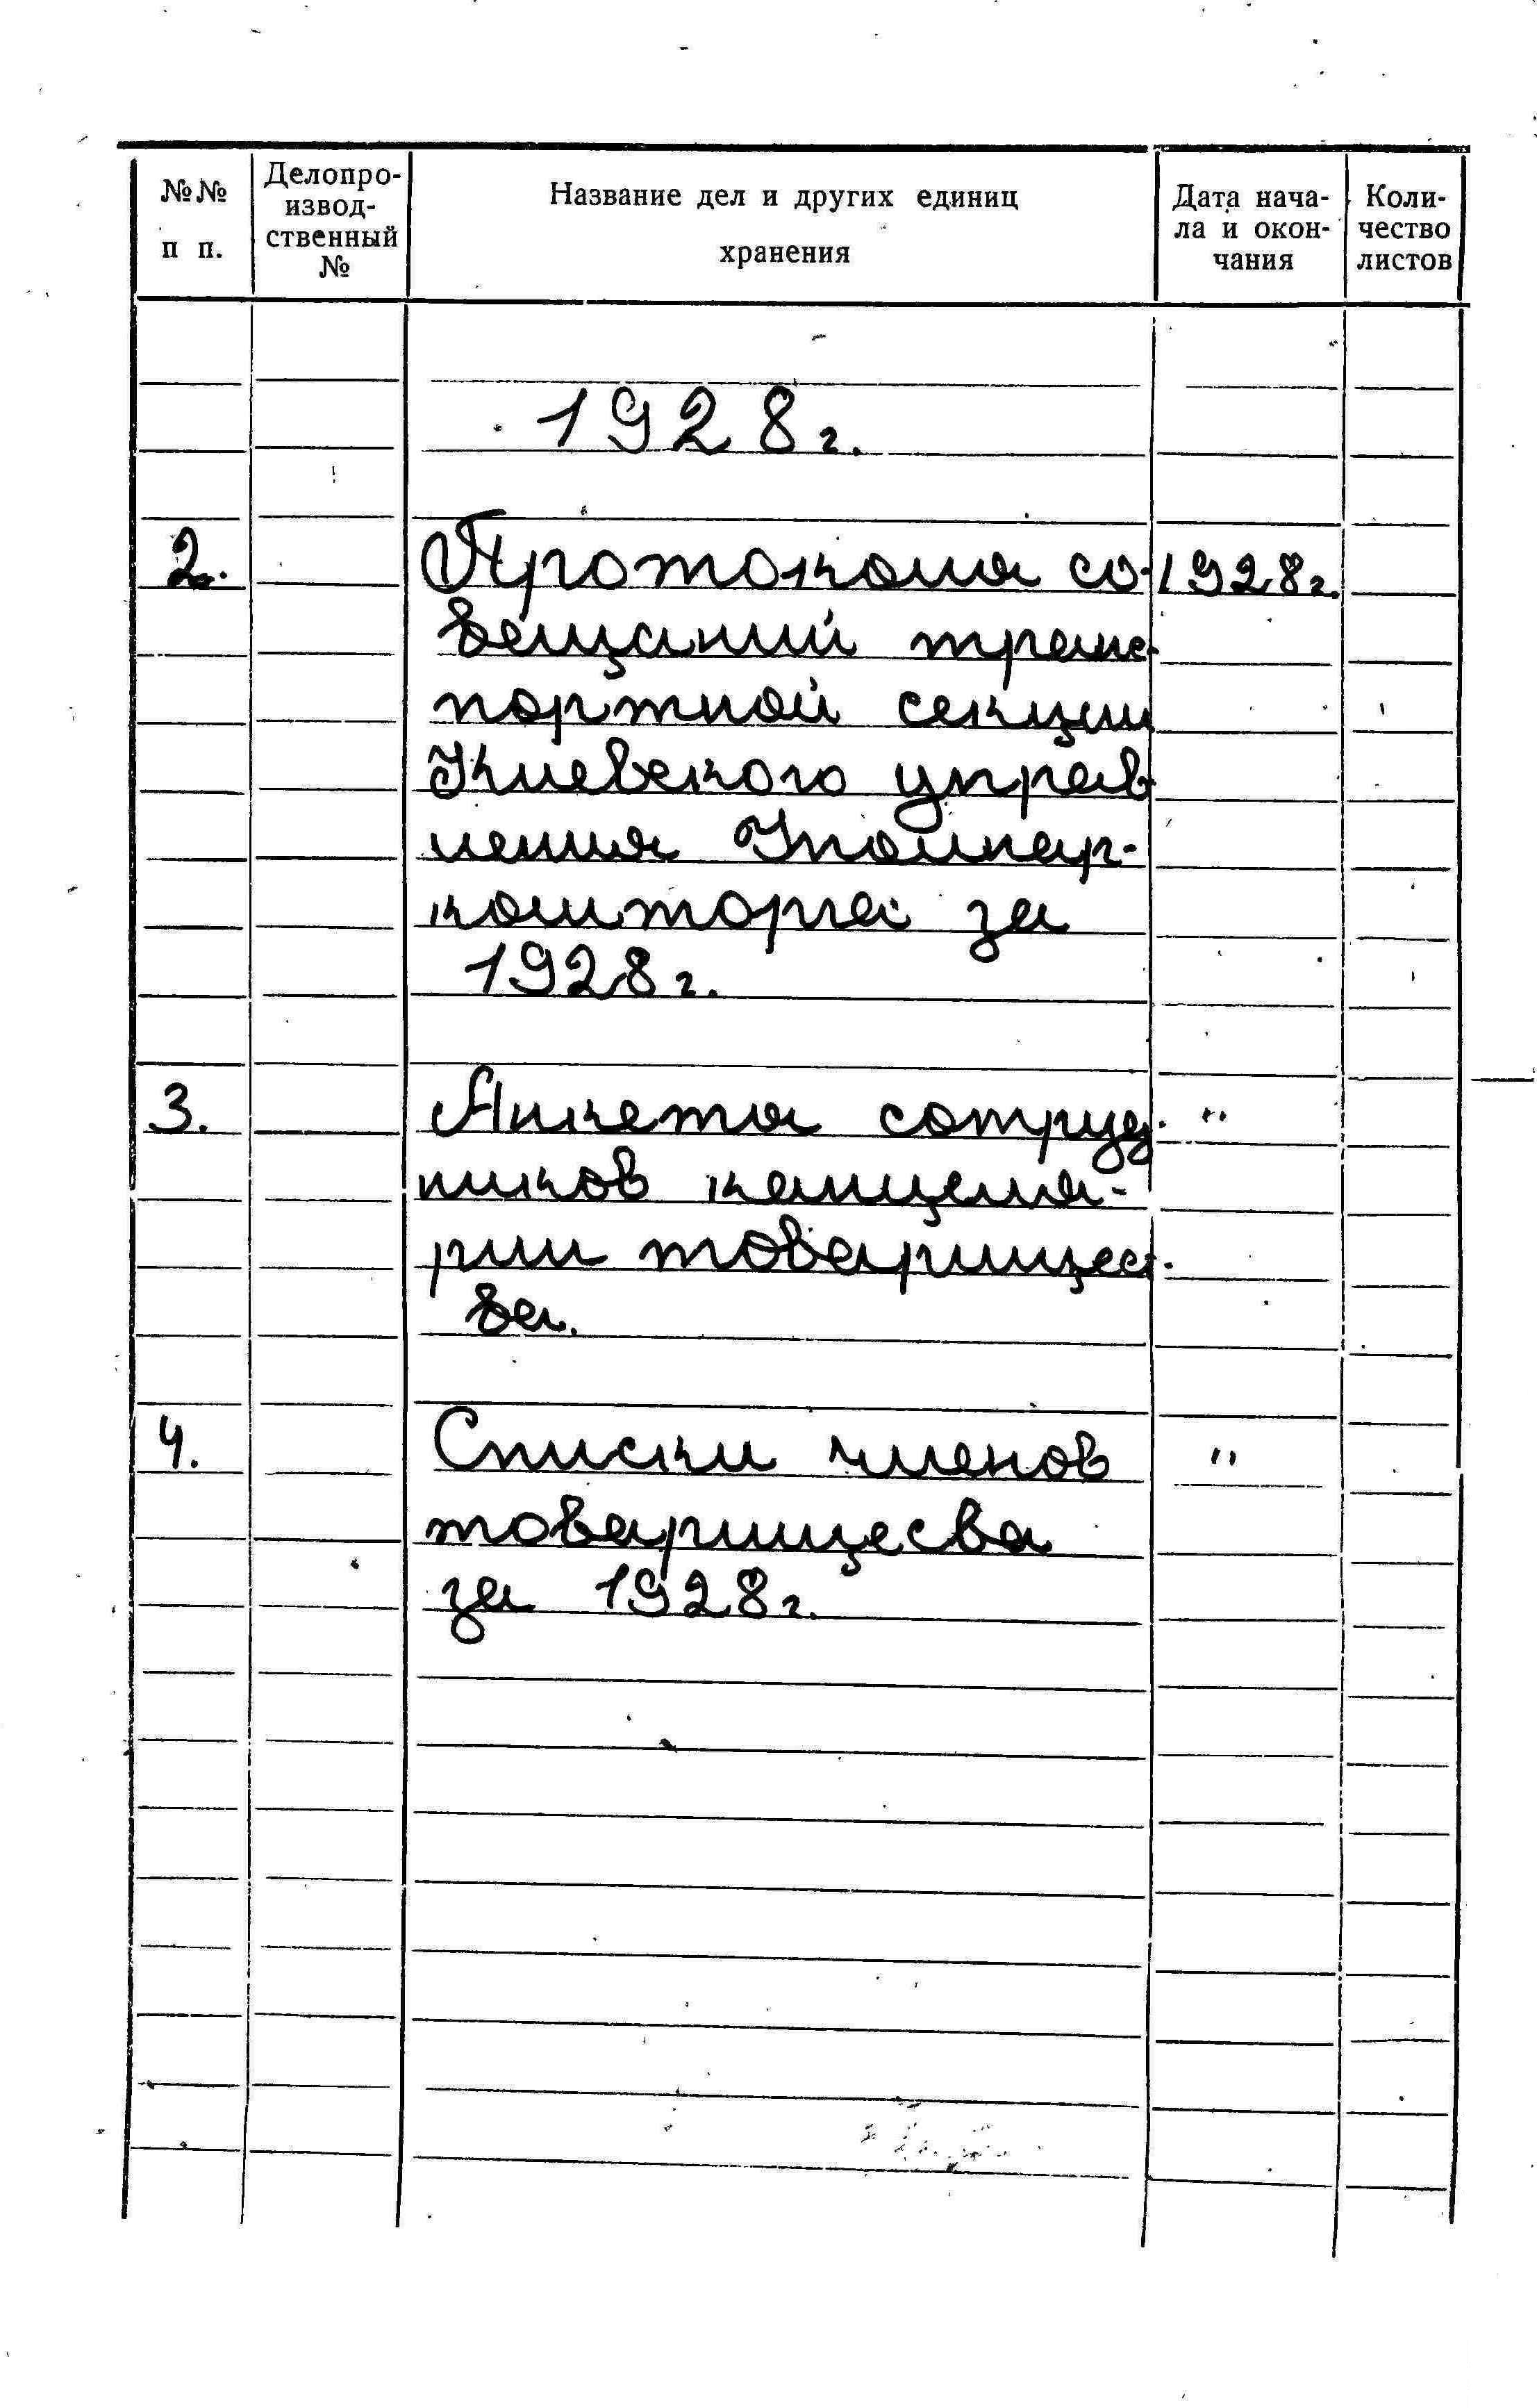 №№ п п.
Делопро-
извод-
ственный
№
Название дел и других единиц
хранения
Дата нача-
ла и окон-
чания
Коли-
чество
листов
1928г.
2. Протоколы со- 1928г.
вещаний транс-
портной секции
Киевского управ-
ления Уполнар-
комторга за
1928г.
3. Анкеты сотруд- "
ников канцеля-
рии товарищест-
ва.
4. Списки членов "
товарищесва
за 1928г.